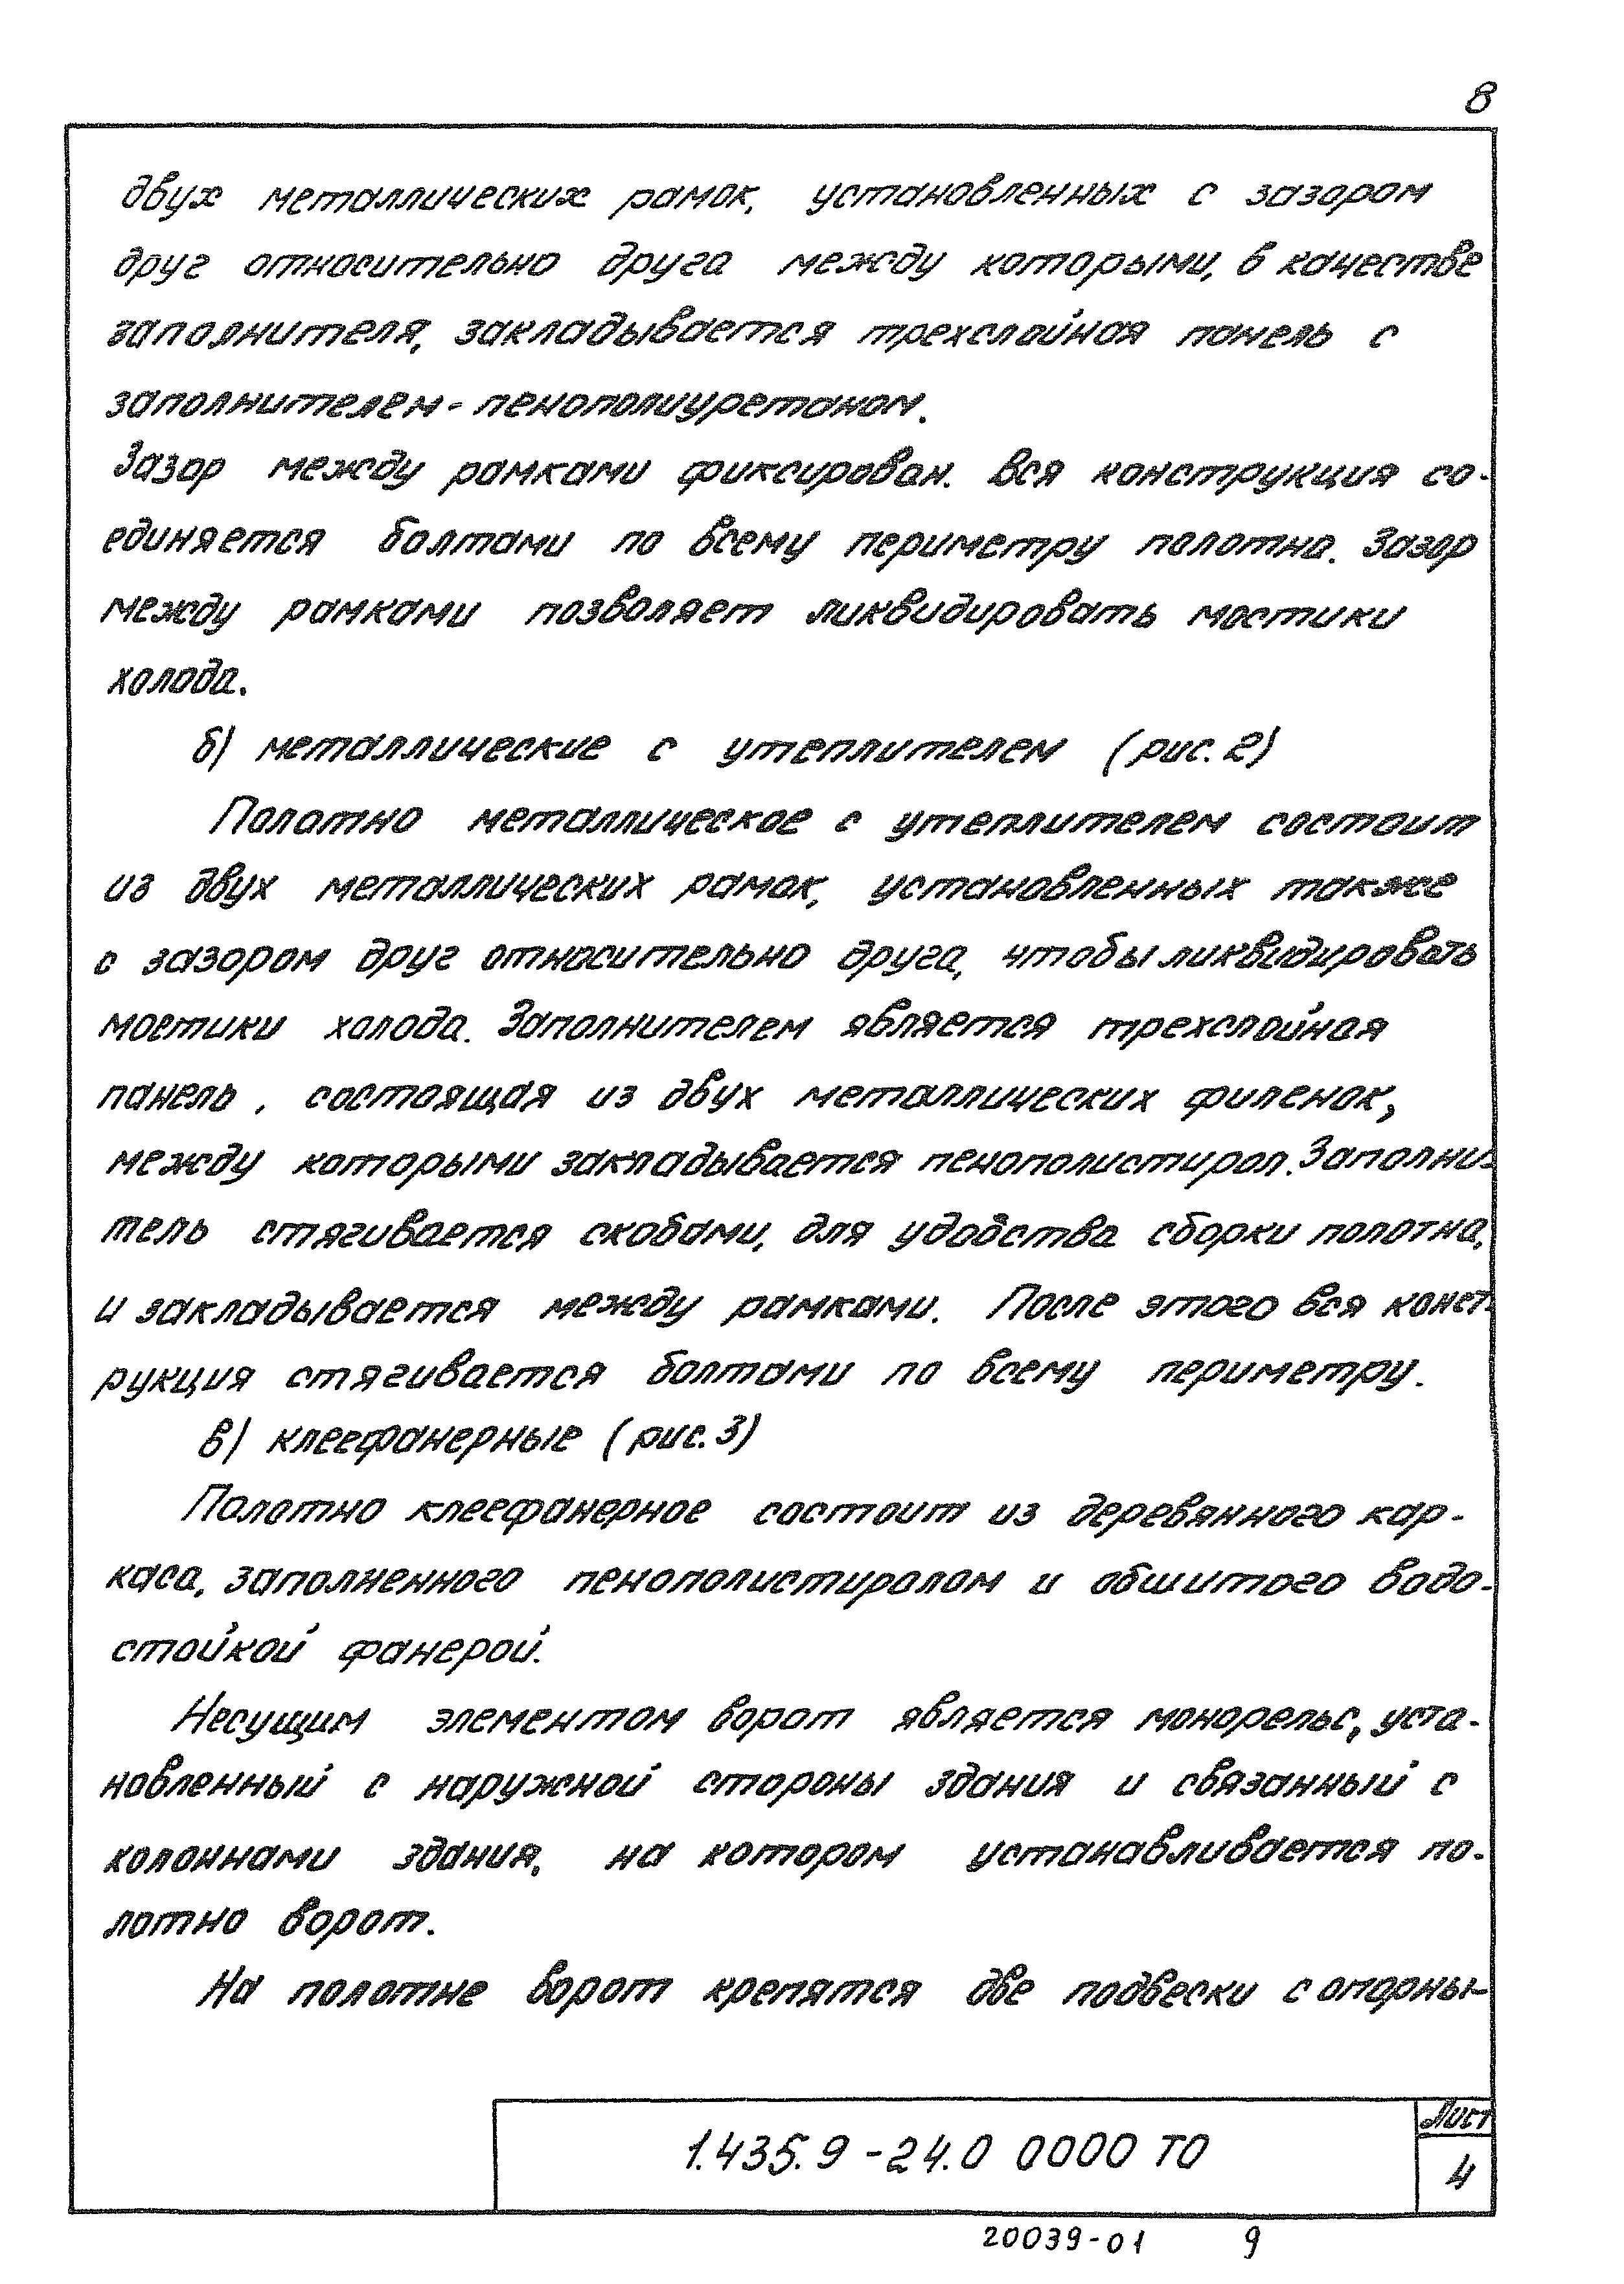 8
двух металлических рамок, установленных с зазором
друг относительно друга между которыми, в качестве
заполнителя, закладывается трехслойная панель с
заполнителем - пенополиуретаном.
Зазор между рамками фиксирован. Вся конструкция со-
единяется болтами по всему периметру полотна. Зазор
между рамками позволяет ликвидировать мостики
холода.
б) металлические с утеплителем (рис. 2)
Полотно металлическое с утеплителем состоит
из двух металлических рамок, установленных также
с зазором друг относительно друга, чтобы ликвидировать
мостики холода. Заполнителем является трехслойная
панель, состоящая из двух металлических филенок,
между которыми закладывается пенополистирол. Заполни-
тель стягивается скобами, для удобства сборки полотна,
и закладывается между рамками. После этого вся конст-
рукция стягивается болтами по всему периметру.
в) клеефанерные (рис. 3)
Полотно клеефанерное состоит из деревянного кар-
каса, заполненного пенополистиролом и обшитого водо-
стойкой фанерой.
Несущим элементом ворот является монорельс, уста-
новленный с наружной стороны здания и связанный с
колоннами здания, на котором устанавливается по-
лотно ворот.
На полотне ворот крепятся две подвески с опорны-
1.435.9-24.0 0000 ТО
Лист
4
20039-01 9